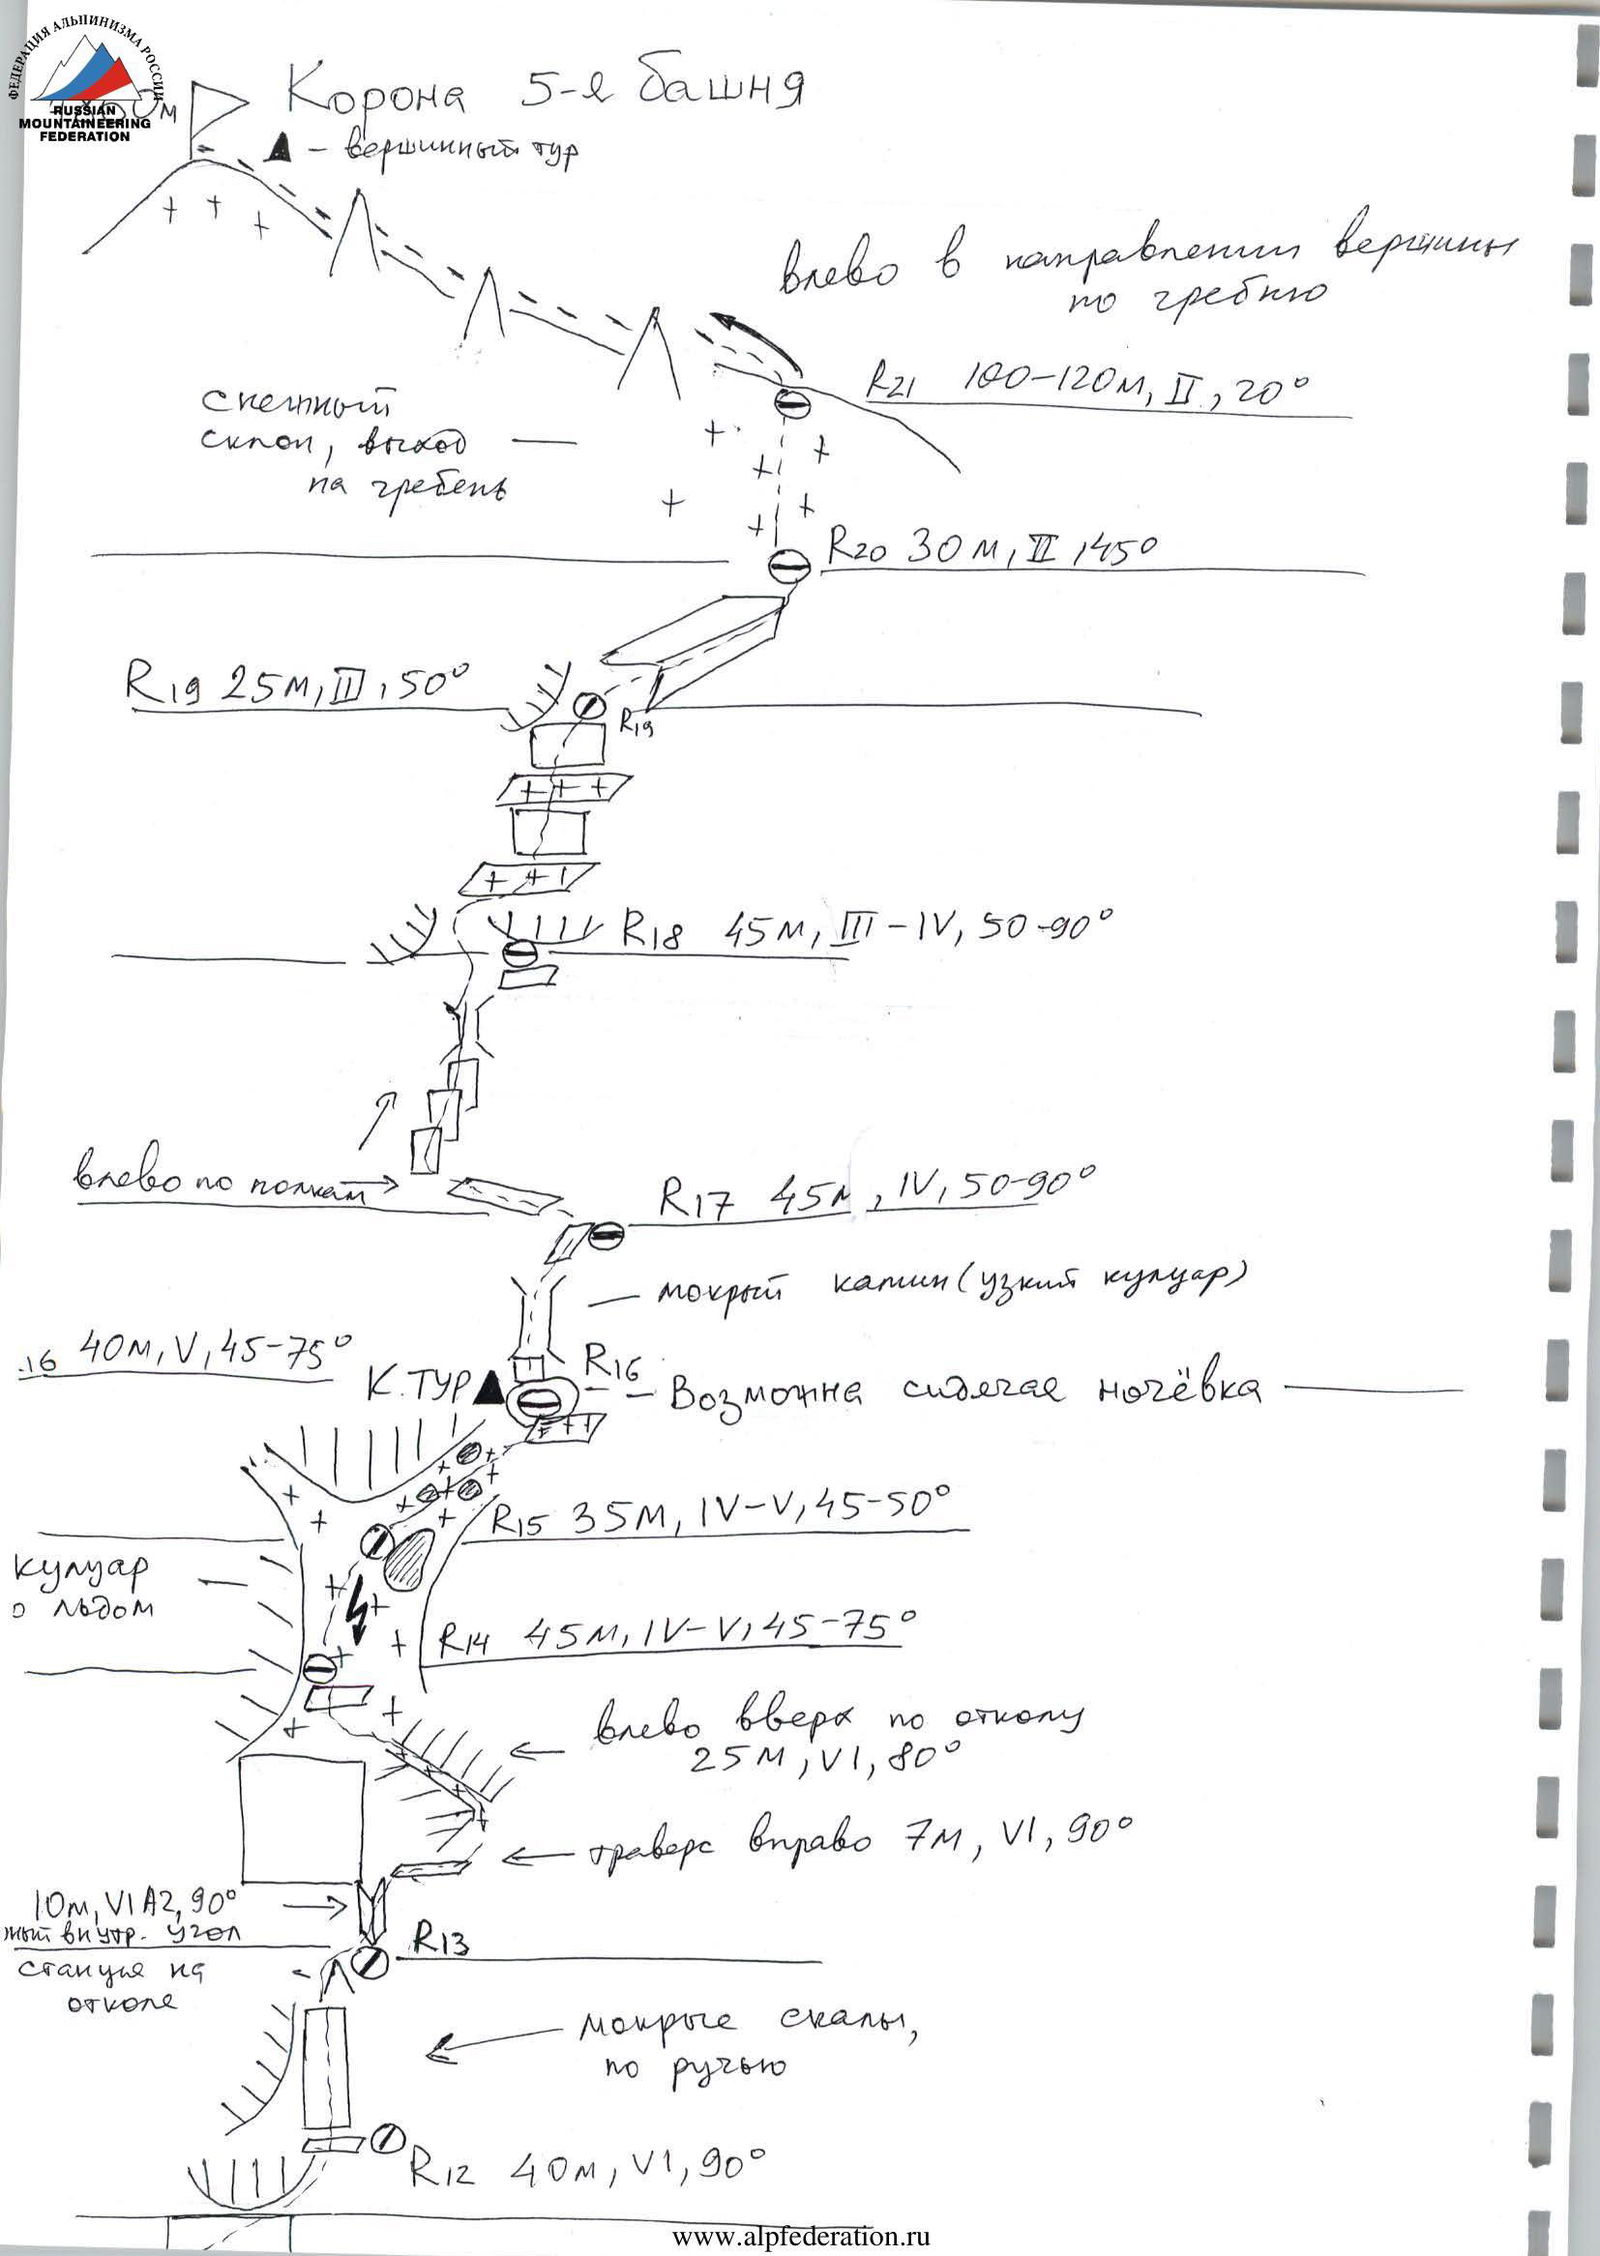 ФЕДЕРАЦИЯ АЛЬПИНИЗМА РОССИИ
RUSSIAN
MOUNTAINEERING
FEDERATION
Корона 5-я башня
▲ - вершинный тур
влево в направлении вершины
по гребню
R21 100-120м, II, 20°
снежный
склон, выход
на гребень
R20 30м, II, 45°
R19 25м, III, 50°
R19
R18 45м, III-IV, 50-90°
влево по полкам
R17 45м, IV, 50-90°
мокрый камин (узкий кулуар)
16 40м, V, 45-75°
R16
К.ТУР
Возможна сидячая ночёвка
R15 35м, IV-V, 45-50°
кулуар
о льдом
R14 45м, IV-V, 45-75°
влево вверх по отколу
25м, VI, 80°
траверс вправо 7м, VI, 90°
10м, VI A2, 90°
ный внутр. угол
R13
станция на
отколе
мокрые скалы,
по ручью
R12 40м, VI, 90°
www.alpfederation.ru